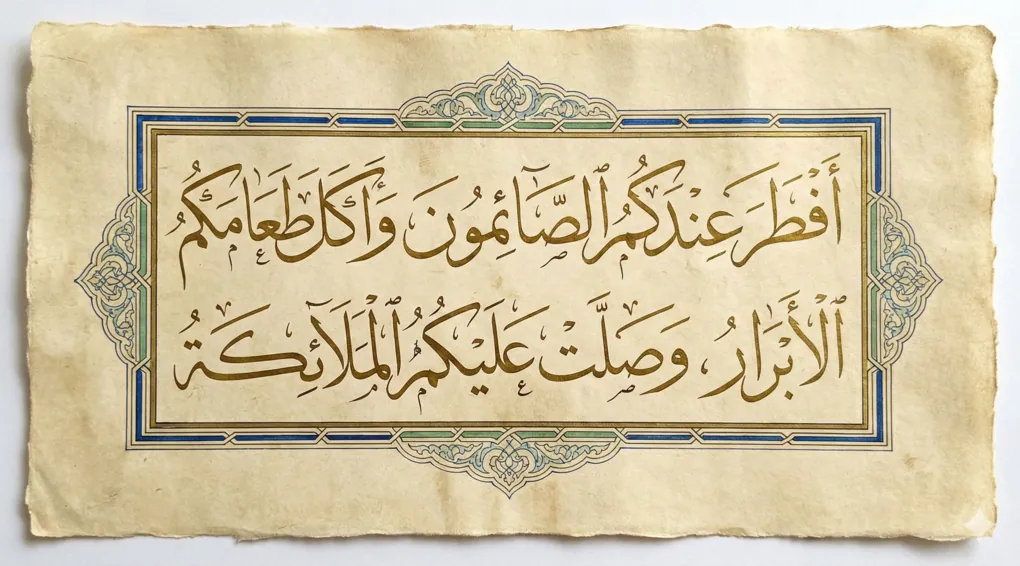 أَفْطَرَ عِنْدَكُمُ ٱلصَّآئِمُونَ وَأَكَلَ طَعَامَكُمُ
ٱلْأَبْرَارُ، وَصَلَّتْ عَلَيْكُمُ ٱلْمَلَآئِكَةُ